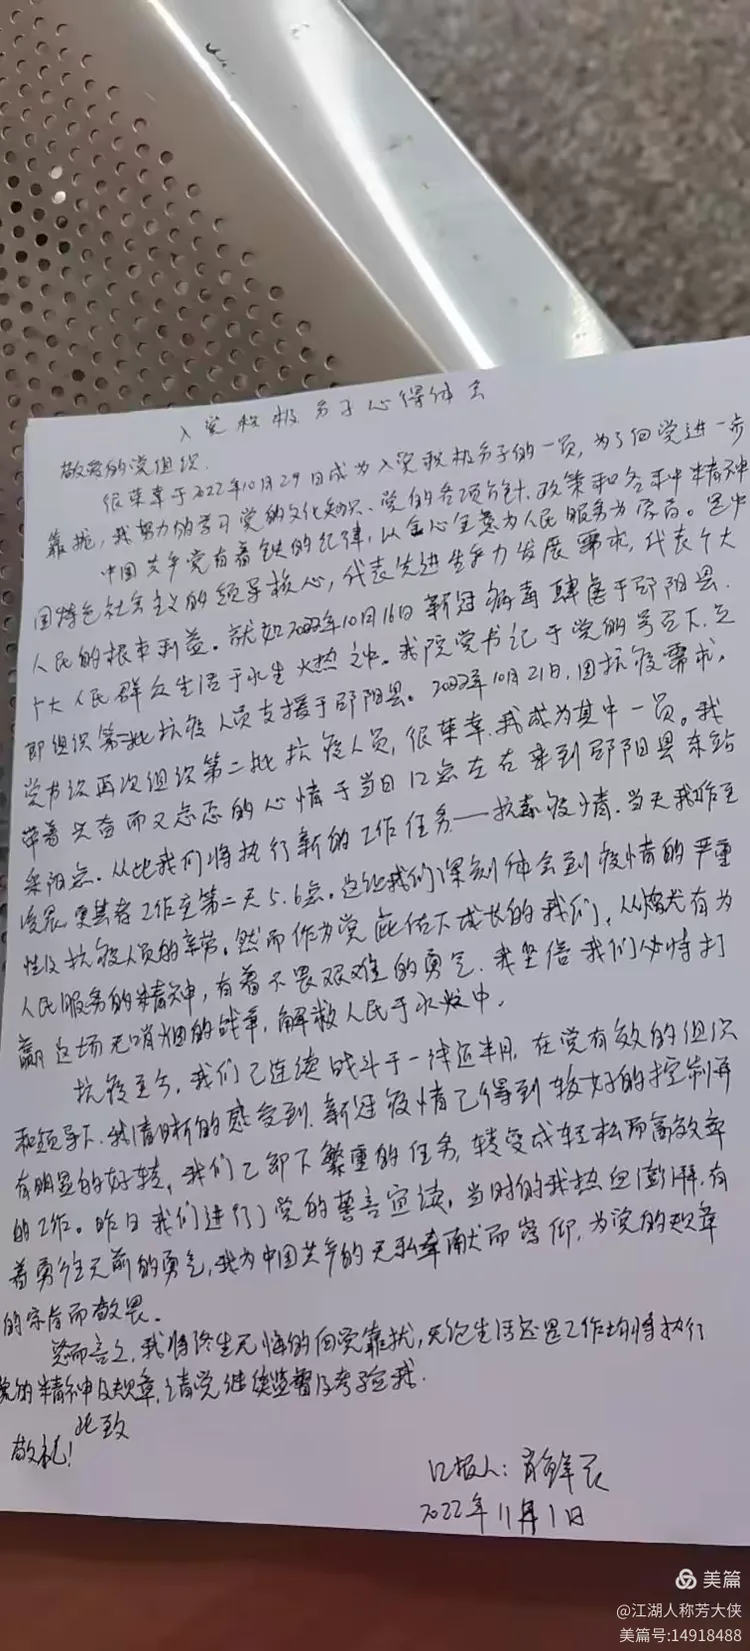 入党积极分子心得体会
敬爱的党组织.
很荣幸于2022年10月29日成为入党积极分子的一员,为了向党进一步
靠拢,我努力的学习党的文化知识、党的各项方针、政策和各种精神
中国共产党有着铁的纪律,以全心全意为人民服务为宗旨。是中
国特色社会主义的领导核心,代表先进生产力发展需求,代表个大
人民的根本利益。就如2022年10月16日新冠病毒肆虐于邵阳县.
个大人民群众生活于水生火热之中。我院党书记于党的号召下.立
即组织第一批抗疫人员支援于邵阳县。2022年10月21日.因抗疫需求,
党书记再次组织第二批抗疫人员,很荣幸.我成为其中一员。我
带着兴奋而又忐忑的心情于当日12点左右来到邵阳县东站
采阳点.从此我们将执行新的工作任务——抗疫情.当天我工作至
凌晨.更甚者工作至第二天5.6点。这让我们深刻体会到疫情的严重
性及抗疫人员的辛劳。然而作为党庇佑下成长的我们,从有为
人民服务的精神,有着不畏艰难的勇气.我坚信我们必将打
赢这场无硝烟的战争,解救人民于水火中.
抗疫至今,我们已连续战斗于一线近半月.在党有效的组织
和领导下.我清晰的感受到.新冠疫情已得到较好的控制并
有明显的好转,我们已卸下繁重的任务,转变成轻松而高效率
的工作。昨日我们进行了党的誓言宣读,当时的我热血澎湃.有
着勇往无前的勇气,我为中国共产的无私奉献而崇仰.为党的规章
的宗旨而敬畏。
总而言之,我将终生无悔的向党靠拢,无论生活还是工作均将执行
党的精神及规章,请党继续监督及考验我.
此致
敬礼!
汇报人:肖
2022年11月1日
美篇
@江湖人称芳大侠
美篇号:14918488